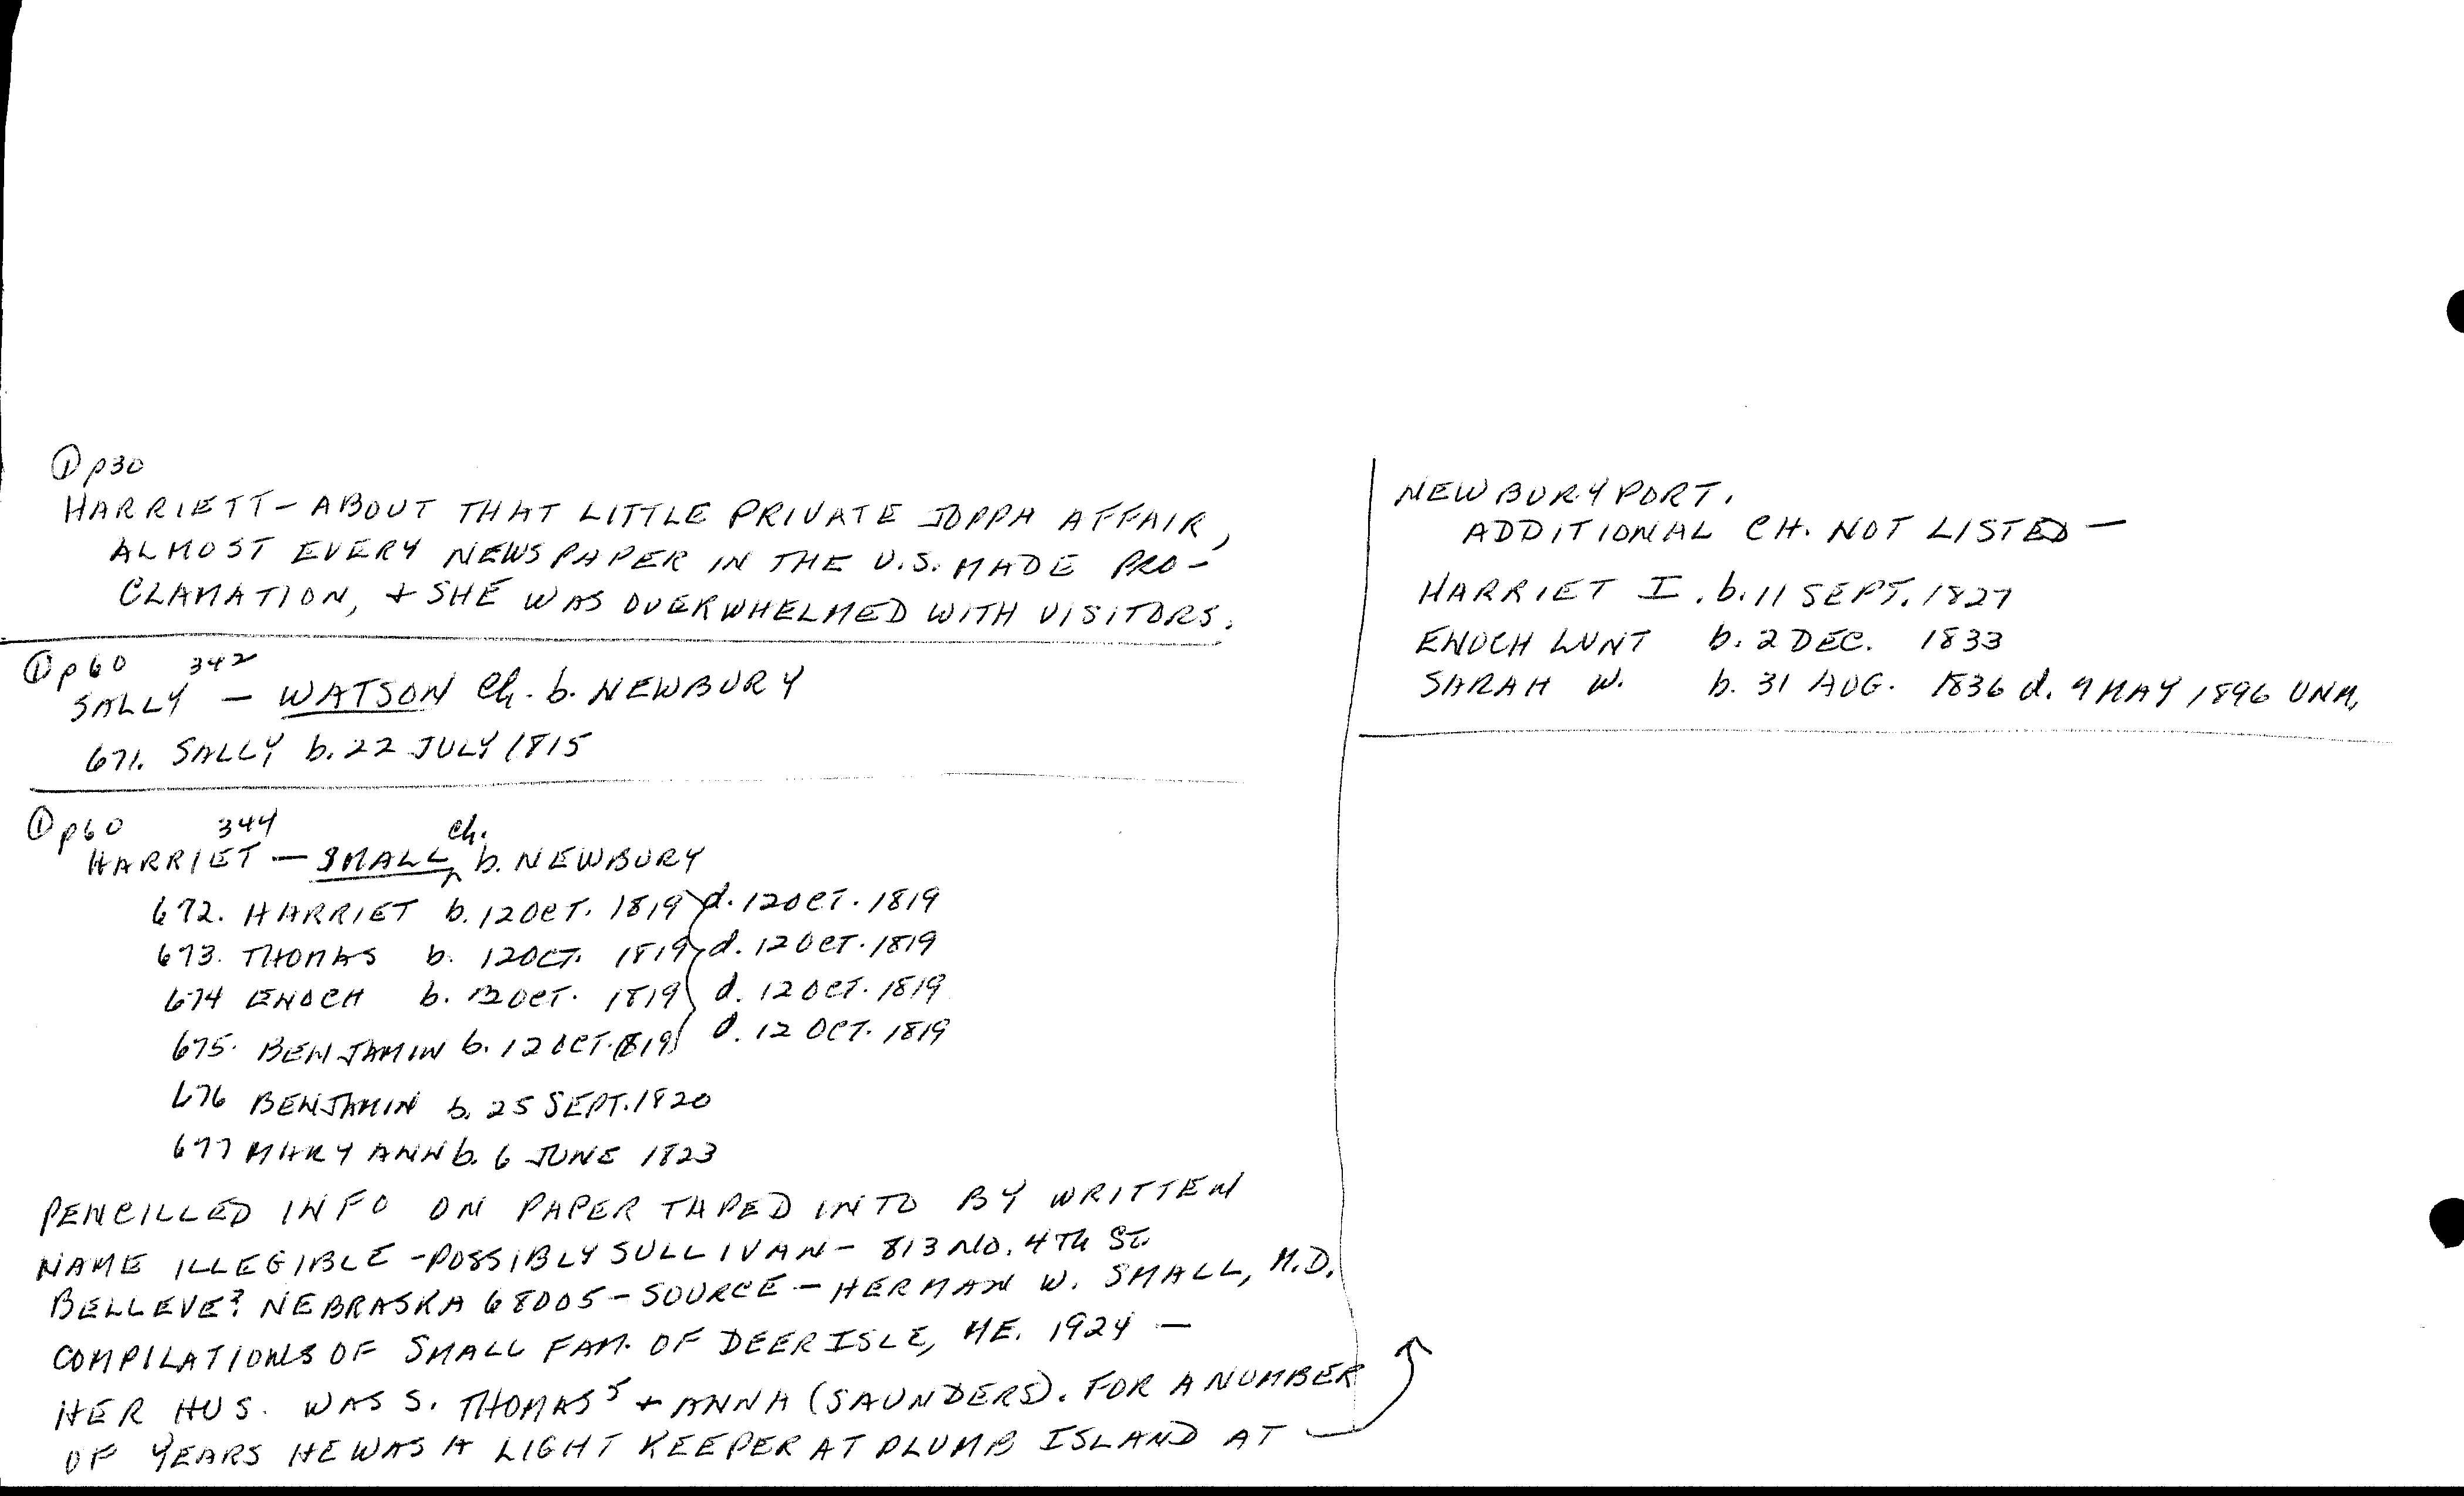 ① p30
HARRIETT - ABOUT THAT LITTLE PRIVATE JOPPA AFFAIR,
ALMOST EVERY NEWSPAPER IN THE U.S. MADE PRO-
CLAMATION, + SHE WAS OVERWHELMED WITH VISITORS.
① p60 342
SALLY - WATSON Ch. b. NEWBURY
671. SALLY b. 22 JULY 1815
① p60 344
HARRIET - SMALL ch. b. NEWBURY
672. HARRIET b. 12 OCT. 1819 d. 12 OCT. 1819
673. THOMAS b. 12 OCT. 1819 d. 12 OCT. 1819
674 ENOCH b. 12 OCT. 1819 d. 12 OCT. 1819
675. BENJAMIN b. 12 OCT. 1819 d. 12 OCT. 1819
676 BENJAMIN b. 25 SEPT. 1820
677 MARY ANN b. 6 JUNE 1823
PENCILLED INFO ON PAPER TAPED INTO BY WRITTEN
NAME ILLEGIBLE - POSSIBLY SULLIVAN - 813 NO. 4TH ST.
BELLEVE? NEBRASKA 68005 - SOURCE - HERMAN W. SMALL, M.D.
COMPILATIONS OF SMALL FAM. OF DEER ISLE, ME. 1924 -
HER HUS. WAS S. THOMAS⁵ + ANNA (SAUNDERS). FOR A NUMBER
OF YEARS HE WAS A LIGHT KEEPER AT PLUMB ISLAND AT
NEWBURYPORT.
ADDITIONAL CH. NOT LISTED -
HARRIET I. b. 11 SEPT. 1827
ENOCH LUNT b. 2 DEC. 1833
SARAH W. b. 31 AUG. 1836 d. 9 MAY 1896 UNM.